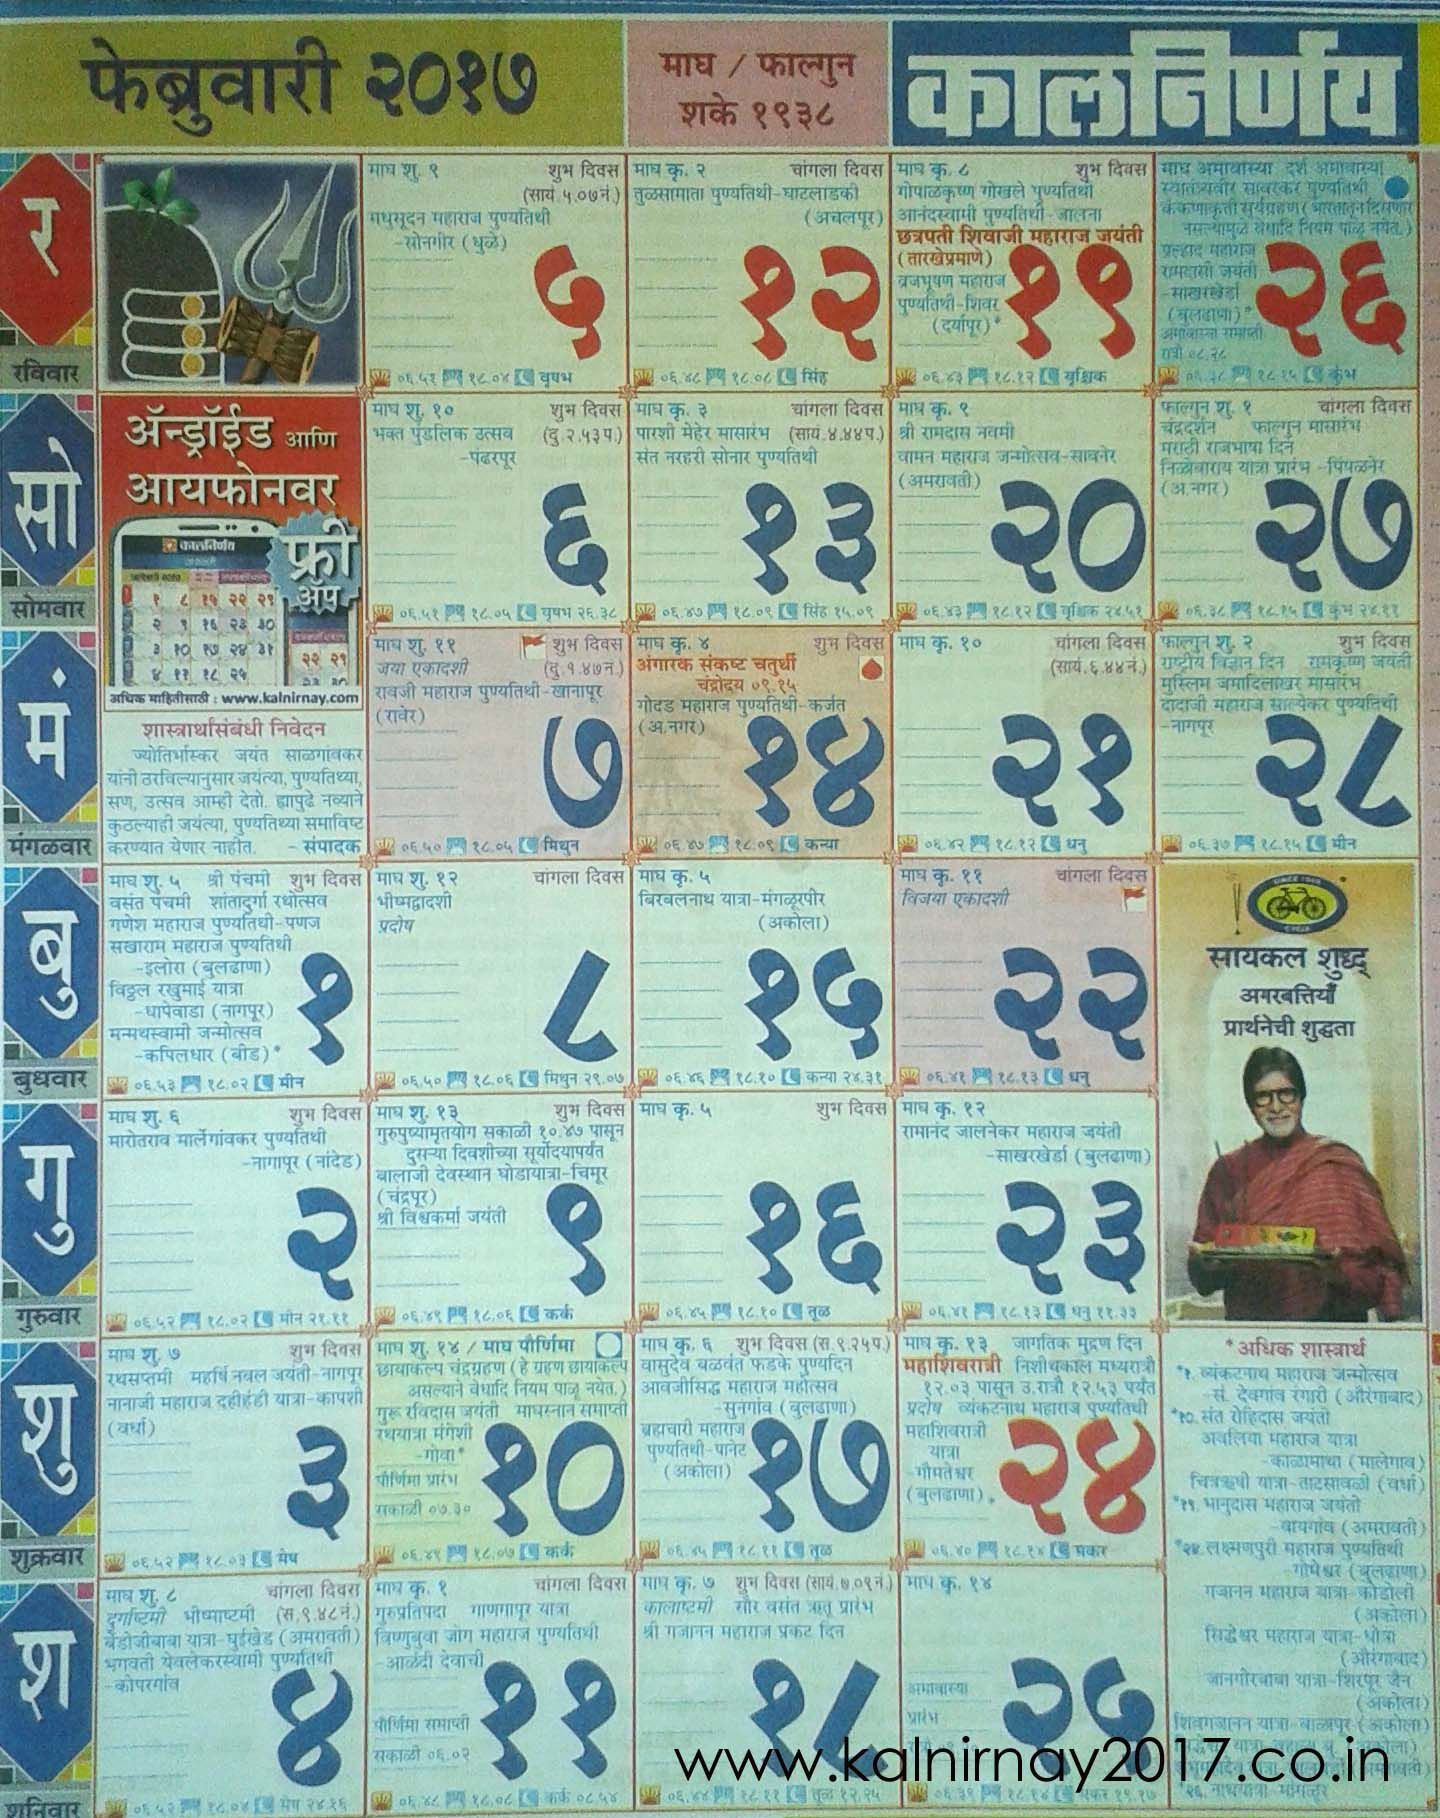 फेब्रुवारी २०१७
माघ / फाल्गुन
शके १९३८
कालनिर्णय
र
रविवार
माघ शु. ९ शुभ दिवस
(सायं.५.०७नं.)
मधुसूदन महाराज पुण्यतिथी
-सोनगीर (धुळे)
५
०६.५१ १८.०४ वृषभ
माघ कृ. २ चांगला दिवस
तुळसामाता पुण्यतिथी-घाटलाडकी
(अचलपूर)
१२
०६.४८ १८.०८ सिंह
माघ कृ. ८ शुभ दिवस
गोपाळकृष्ण गोखले पुण्यतिथी
आनंदस्वामी पुण्यतिथी-जालना
छत्रपती शिवाजी महाराज जयंती
(तारखेप्रमाणे)
व्रजभूषण महाराज
पुण्यतिथी-शिवर
(दर्यापूर)*
१९
०६.४३ १८.१२ वृश्चिक
माघ अमावास्या दर्श अमावास्या
स्वातंत्र्यवीर सावरकर पुण्यतिथी
कंकणाकृती सूर्यग्रहण (भारतातून दिसणार
नसल्यामुळे वेधादि नियम पाळू नयेत.)
प्रल्हाद महाराज
रामदासी जयंती
-साखरखेर्डा
(बुलढाणा)*
अमावास्या समाप्ती
रात्री ०८.२८
२६
०६.३८ १८.१५ कुंभ
सो
सोमवार
अ‍ॅन्ड्रॉईड आणि
आयफोनवर
फ्री
अ‍ॅप
कालनिर्णय
अधिक माहितीसाठी : www.kalnirnay.com
माघ शु. १० शुभ दिवस
भक्त पुंडलिक उत्सव (दु.२.५३प.)
-पंढरपूर
६
०६.५१ १८.०५ वृषभ २६.३८
माघ कृ. ३ चांगला दिवस
पारशी मेहेर मासारंभ (सायं.४.४४प.)
संत नरहरी सोनार पुण्यतिथी
१३
०६.४७ १८.०९ सिंह १५.०९
माघ कृ. ९
श्री रामदास नवमी
वामन महाराज जन्मोत्सव-सावनेर
(अमरावती)
२०
०६.४३ १८.१२ वृश्चिक २४.५१
फाल्गुन शु. १ चांगला दिवस
चंद्रदर्शन फाल्गुन मासारंभ
मराठी राजभाषा दिन
निळोबाराय यात्रा प्रारंभ -पिंपळनेर
(अ.नगर)
२७
०६.३८ १८.१५ कुंभ २४.११
मं
मंगळवार
शास्त्रार्थासंबंधी निवेदन
ज्योतिर्भास्कर जयंत साळगांवकर
यांनी ठरविल्यानुसार जयंत्या, पुण्यतिथ्या,
सण, उत्सव आम्ही देतो. ह्यापुढे नव्याने
कुठल्याही जयंत्या, पुण्यतिथ्या समाविष्ट
करण्यात येणार नाहीत. - संपादक
माघ शु. ११ शुभ दिवस
जया एकादशी (दु.१.४७नं.)
रावजी महाराज पुण्यतिथी-खानापूर
(रावेर)
७
०६.५० १८.०५ मिथुन
माघ कृ. ४ शुभ दिवस
अंगारक संकष्ट चतुर्थी
चंद्रोदय ०९.१५
गोदड महाराज पुण्यतिथी-कर्जत
(अ.नगर)
१४
०६.४७ १८.०९ कन्या
माघ कृ. १० चांगला दिवस
(सायं.६.४४नं.)
२१
०६.४२ १८.१२ धनु
फाल्गुन शु. २ शुभ दिवस
राष्ट्रीय विज्ञान दिन रामकृष्ण जयंती
मुस्लिम जमादिलाखर मासारंभ
दादाजी महाराज साल्पेकर पुण्यतिथी
-नागपूर
२८
०६.३७ १८.१५ मीन
बु
बुधवार
माघ शु. ५ श्री पंचमी शुभ दिवस
वसंत पंचमी शांतादुर्गा रथोत्सव
गणेश महाराज पुण्यतिथी-पणज
सखाराम महाराज पुण्यतिथी
-इलोरा (बुलढाणा)
विठ्ठल रखुमाई यात्रा
-धापेवाडा (नागपूर)
मन्मथस्वामी जन्मोत्सव
-कपिलधार (बीड)*
१
०६.५३ १८.०२ मीन
माघ शु. १२ चांगला दिवस
भीष्मद्वादशी
प्रदोष
८
०६.५० १८.०६ मिथुन २९.०७
माघ कृ. ५
बिरबलनाथ यात्रा-मंगळूरपीर
(अकोला)
१५
०६.४६ १८.१० कन्या २४.३१
माघ कृ. ११ चांगला दिवस
विजया एकादशी
२२
०६.४१ १८.१३ धनु
SINCE 1948
CYCLE
सायकल शुद्ध
अगरबत्तियाँ
प्रार्थनेची शुद्धता
गु
गुरुवार
माघ शु. ६ शुभ दिवस
मारोतराव मार्लेगांवकर पुण्यतिथी
-नागापूर (नांदेड)
२
०६.५२ १८.०२ मीन २१.११
माघ शु. १३ शुभ दिवस
गुरुपुष्यामृतयोग सकाळी १०.४७ पासून
दुसऱ्या दिवशीच्या सूर्योदयापर्यंत
बालाजी देवस्थान घोडायात्रा-चिमूर
(चंद्रपूर)
श्री विश्वकर्मा जयंती
९
०६.४९ १८.०६ कर्क
माघ कृ. ५ शुभ दिवस
१६
०६.४५ १८.१० तूळ
माघ कृ. १२
रामानंद जालनेकर महाराज जयंती
-साखरखेर्डा (बुलढाणा)
२३
०६.४१ १८.१३ धनु ११.३३
शु
शुक्रवार
माघ शु. ७ शुभ दिवस
रथसप्तमी महर्षि नवल जयंती-नागपूर
नानाजी महाराज दहीहंडी यात्रा-कापशी
(वर्धा)
३
०६.५२ १८.०३ मेष
माघ शु. १४ / माघ पौर्णिमा
छायाकल्प चंद्रग्रहण (हे ग्रहण छायाकल्प
असल्याने वेधादि नियम पाळू नयेत.)
गुरू रविदास जयंती माघस्नान समाप्ती
रथयात्रा मंगेशी
-गोवा*
पौर्णिमा प्रारंभ
सकाळी ०७.३०
१०
०६.४९ १८.०७ कर्क
माघ कृ. ६ शुभ दिवस (स.९.२५प.)
वासुदेव बळवंत फडके पुण्यदिन
आवजीसिद्ध महाराज महोत्सव
-सुनगांव (बुलढाणा)
ब्रह्मचारी महाराज
पुण्यतिथी-पानेट
(अकोला)
१७
०६.४५ १८.११ तूळ
माघ कृ. १३ जागतिक मुद्रण दिन
महाशिवरात्री निशीथकाल मध्यरात्रौ
१२.०३ पासून उ.रात्रौ १२.५३ पर्यंत
प्रदोष व्यंकटनाथ महाराज पुण्यतिथी
महाशिवरात्री
यात्रा
-गौमतेश्वर
(बुलढाणा)*
२४
०६.४० १८.१४ मकर
*अधिक शास्त्रार्थ
*१. व्यंकटनाथ महाराज जन्मोत्सव
-सं. देवगांव रंगारी (औरंगाबाद)
*१०.संत रोहिदास जयंती
अवलिया महाराज यात्रा
-काळामाथा (मालेगाव)
चित्रऋषी यात्रा-ताटसावळी (वर्धा)
*१९.भानुदास महाराज जयंती
-वायगांव (अमरावती)
*२४.लक्ष्मणपुरी महाराज पुण्यतिथी
-गोमेधर (बुलढाणा)
गजानन महाराज यात्रा-कोंडोली
(अकोला)
सिद्धेश्वर महाराज यात्रा-धोत्रा
(औरंगाबाद)
जानगीरबाबा यात्रा-शिरपूर जैन
(अकोला)
शिवगजानन यात्रा-बाळापूर (अकोला)
*२६. नाथयात्रा-मंगळूर
श
शनिवार
माघ शु. ८ चांगला दिवस
दुर्गाष्टमी भीष्माष्टमी (स.९.४८नं.)
बेंडोजीबाबा यात्रा-घुईखेड (अमरावती)
भगवती येवलेकरस्वामी पुण्यतिथी
-कोपरगांव
४
०६.५२ १८.०४ मेष २४.१६
माघ कृ. १ चांगला दिवस
गुरुप्रतिपदा गाणगापूर यात्रा
विष्णुबुवा जोग महाराज पुण्यतिथी
-आळंदी देवाची
पौर्णिमा समाप्ती
सकाळी ०६.०२
११
०६.४८ १८.०८ कर्क ०८.५४
माघ कृ. ७ शुभ दिवस (सायं.७.०९नं.)
कालाष्टमी सौर वसंत ऋतू प्रारंभ
श्री गजानन महाराज प्रकट दिन
१८
०६.४४ १८.११ तूळ १२.२५
माघ कृ. १४
अमावास्या
प्रारंभ
२५
०६.३९ १८.१४ मकर १९.१७
www.kalnirnay2017.co.in